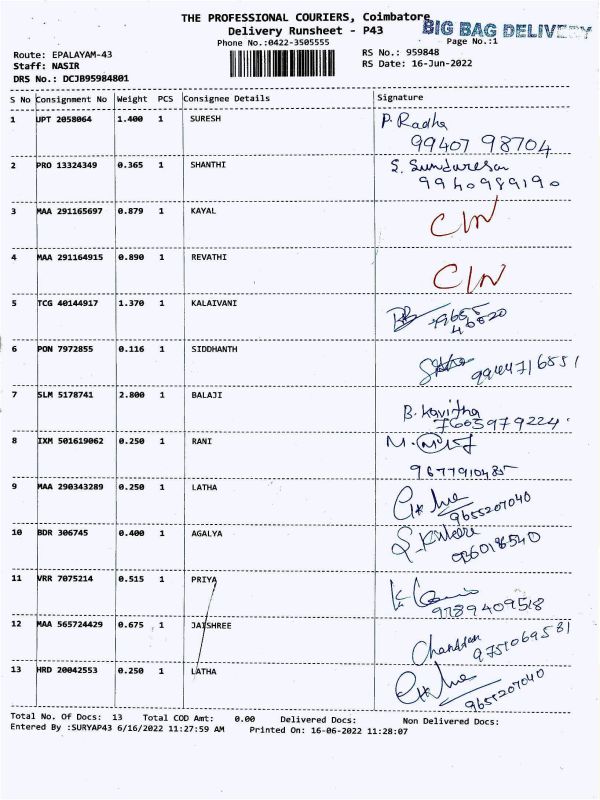 THE PROFESSIONAL COURIERS, Coimbatore
BIG BAG DELIVERY
Delivery Runsheet - P43
Phone No.:0422-3505555
Page No.:1
Route: EPALAYAM-43
RS No.: 959848
Staff: NASIR
RS Date: 16-Jun-2022
DRS No.: DCJB95984801
S No Consignment No Weight PCS Consignee Details Signature
1 UPT 2058064 1.400 1 SURESH P. Radha
99407 98704
2 PRO 13324349 0.365 1 SHANTHI S. Sundaresan
9940989190
3 MAA 291165697 0.879 1 KAYAL
4 MAA 291164915 0.890 1 REVATHI
5 TCG 40144917 1.370 1 KALAIVANI
6 PON 7972855 0.116 1 SIDDHANTH
9944716551
7 SLM 5178741 2.800 1 BALAJI B. Kavitha
7603979224
8 IXM 501619062 0.250 1 RANI
9677910485
9 MAA 290343289 0.250 1 LATHA
9655207040
10 BDR 306745 0.400 1 AGALYA
11 VRR 7075214 0.515 1 PRIYA
9789409518
12 MAA 565724429 0.675 1 JAISHREE
9751069581
13 HRD 20042553 0.250 1 LATHA
9655207040
Total No. Of Docs: 13 Total COD Amt: 0.00 Delivered Docs: Non Delivered Docs:
Entered By :SURYAP43 6/16/2022 11:27:59 AM Printed On: 16-06-2022 11:28:07